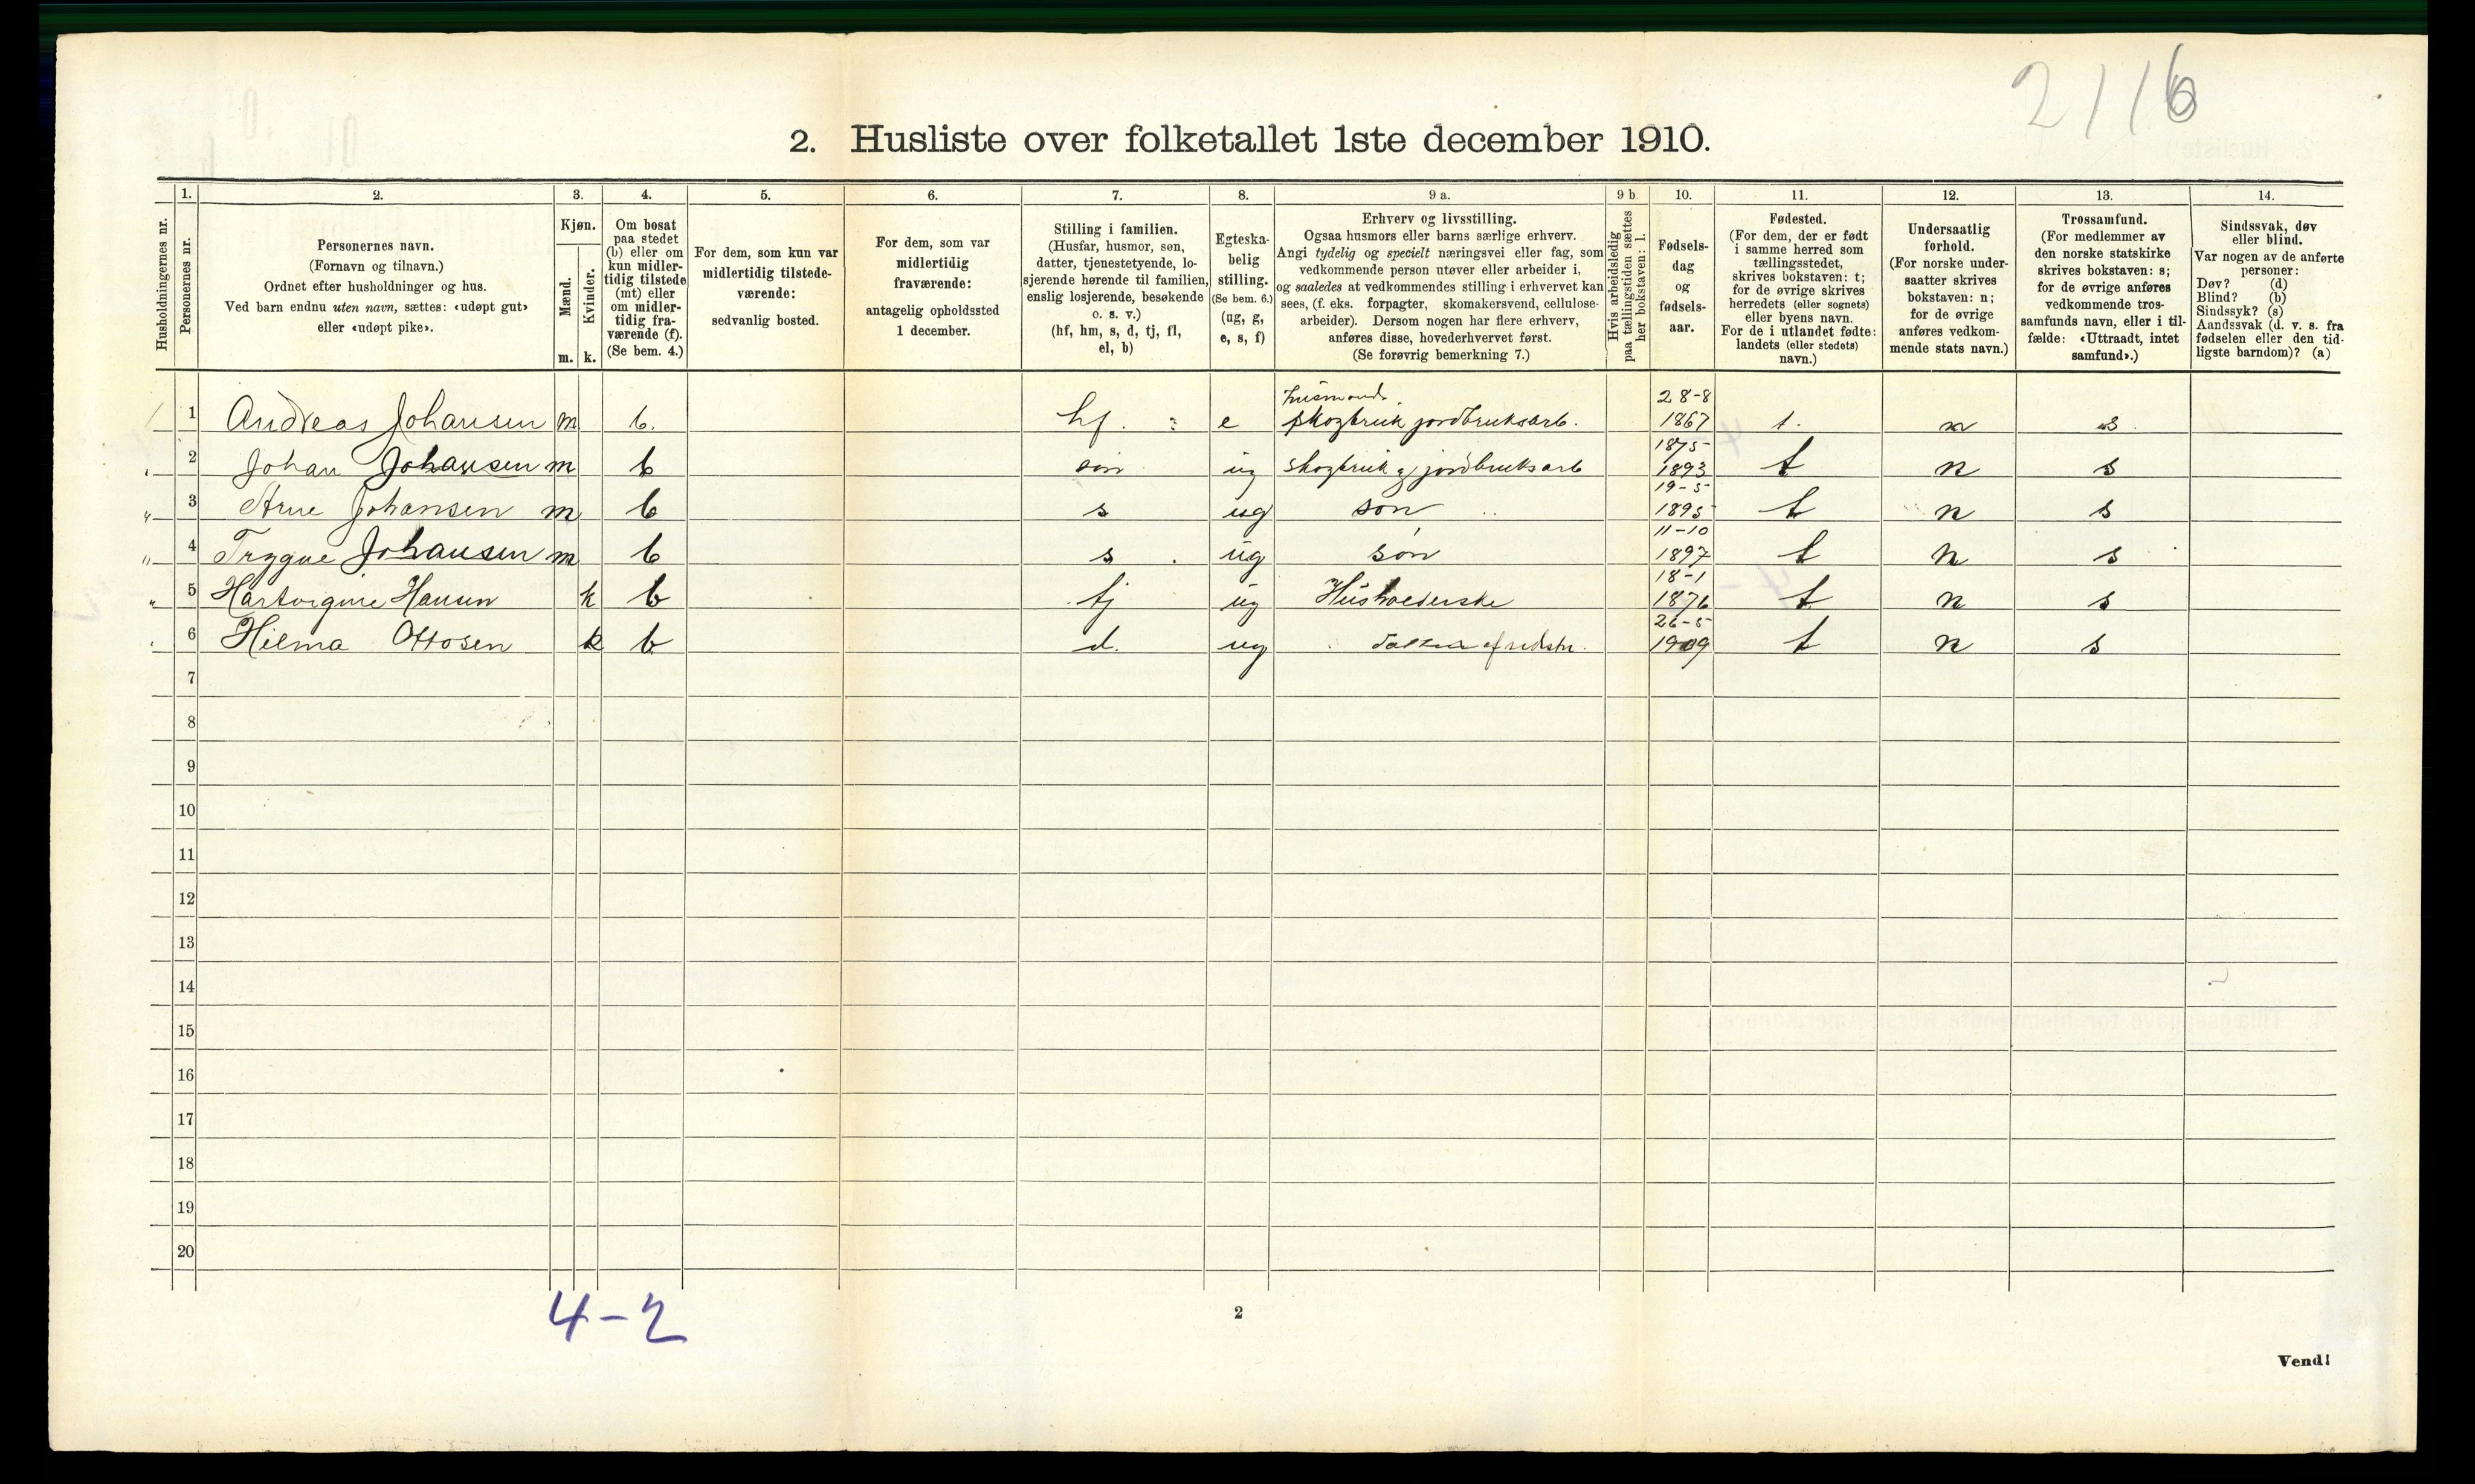 2116
2. Husliste over folketallet 1ste december 1910.
1. 2. 3. 4. 5. 6. 7. 8. 9 a. 9 b. 10. 11. 12. 13. 14.
Husholdningernes nr.
Personernes nr.
Personernes navn.
(Fornavn og tilnavn.)
Ordnet efter husholdninger og hus.
Ved barn endnu uten navn, sættes: «udøpt gut»
eller «udøpt pike».
Kjøn.
Mænd.
Kvinder.
m. k.
Om bosat
paa stedet
(b) eller om
kun midler-
tidig tilstede
(mt) eller
om midler-
tidig fra-
værende (f).
(Se bem. 4.)
For dem, som kun var
midlertidig tilstede-
værende:
sedvanlig bosted.
For dem, som var
midlertidig
fraværende:
antagelig opholdssted
1 december.
Stilling i familien.
(Husfar, husmor, søn,
datter, tjenestetyende, lo-
sjerende hørende til familien,
enslig losjerende, besøkende
o. s. v.)
(hf, hm, s, d, tj, fl,
el, b)
Egteska-
belig
stilling.
(Se bem. 6.)
(ug, g,
e, s, f)
Erhverv og livsstilling.
Ogsaa husmors eller barns særlige erhverv.
Angi tydelig og specielt næringsvei eller fag, som
vedkommende person utøver eller arbeider i,
og saaledes at vedkommendes stilling i erhvervet kan
sees, (f. eks. forpagter, skomakersvend, cellulose-
arbeider). Dersom nogen har flere erhverv,
anføres disse, hovederhvervet først.
(Se forøvrig bemerkning 7.)
Hvis arbeidsledig
paa tællingstiden sættes
her bokstaven: l.
Fødsels-
dag
og
fødsels-
aar.
Fødested.
(For dem, der er født
i samme herred som
tællingsstedet,
skrives bokstaven: t;
for de øvrige skrives
herredets (eller sognets)
eller byens navn.
For de i utlandet fødte:
landets (eller stedets)
navn.)
Undersaatlig
forhold.
(For norske under-
saatter skrives
bokstaven: n;
for de øvrige
anføres vedkom-
mende stats navn.)
Trossamfund.
(For medlemmer av
den norske statskirke
skrives bokstaven: s;
for de øvrige anføres
vedkommende tros-
samfunds navn, eller i til-
fælde: «Uttraadt, intet
samfund».)
Sindssvak, døv
eller blind.
Var nogen av de anførte
personer:
Døv? (d)
Blind? (b)
Sindssyk? (s)
Aandssvak (d. v. s. fra
fødselen eller den tid-
ligste barndom)? (a)
husmand. 28-8
1 Andreas Johansen m b. hf. e skogbruk jordbruksarb. 1867 t. n s.
2 Johan Johansen m b søn ug skogbruk og jordbruksarb 1893 t n s
19-5
3 Arne Johansen m b s ug søn 1895 t n s
11-10
4 Trygve Johansen m b s ug søn 1897 t n s
18-1
5 Hartvigine Hansen k b tj ug Husholderske 1876 t n s
26-5
6 Hilma Ottosen k b d. ug datter af 1909 t n s
7
8
9
10
11
12
13
14
15
16
17
18
19
20
4-2
2
Vend!